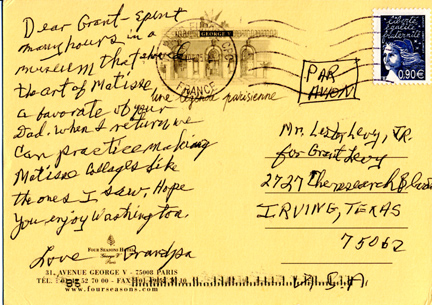 Dear Grant - Spent
many hours in a
museum that shows
the art of Matisse
a favorate of your
Dad. When I return, we
can practice making
Matisse Collages like
the ones I saw. Hope
you enjoy Washington.
Love Grandpa
FOUR SEASONS HOTEL
George V
Paris
31, AVENUE GEORGE V - 75008 PARIS
www.fourseasons.com
GEORGE V
FRANCE
une légende parisienne
Liberté
Égalité
Fraternité
0,90€
PAR
AVION
Mr. Levy, JR.
for Grant Levy
2727
IRVING, TEXAS
75062
U.S.A.